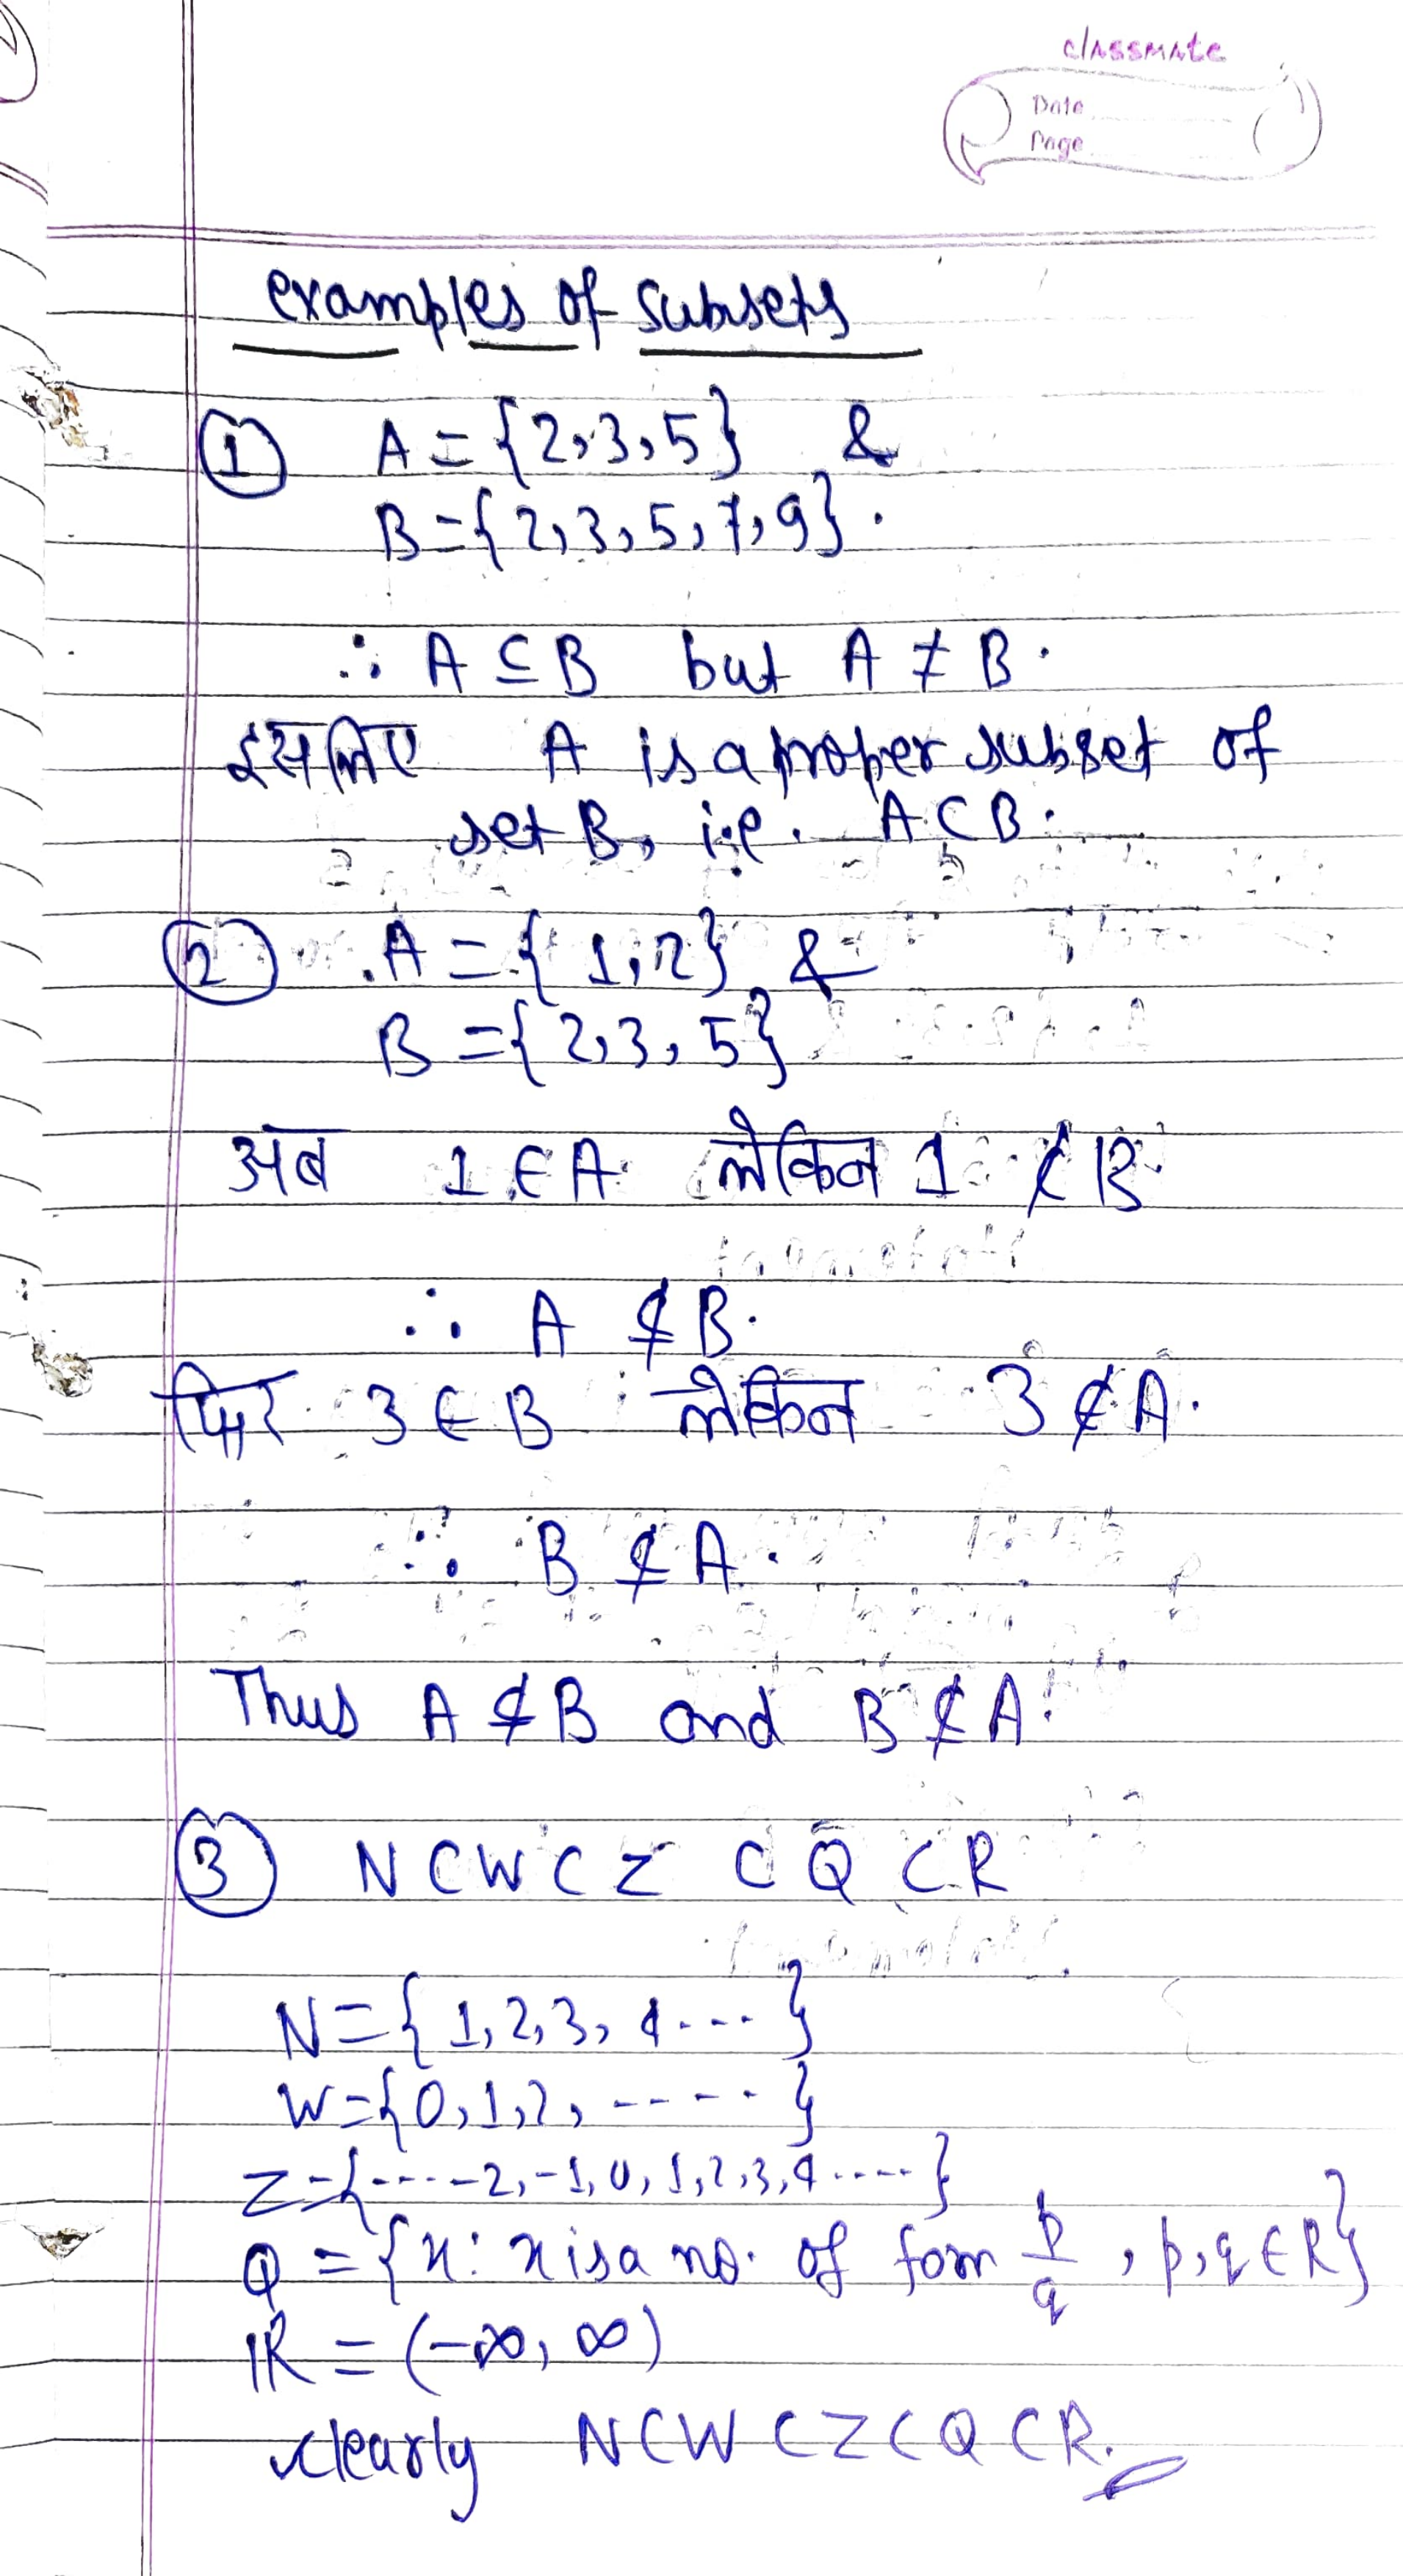 classmate
Date
Page
examples of subsets
① A = {2,3,5} &
B = {2,3,5,7,9}.
∴ A ⊆ B but A ≠ B.
इसलिए A is a proper subset of
set B, i.e. A ⊂ B.
② A = {1,2} &
B = {2,3,5}
अब 1 ∈ A लेकिन 1 ∉ B
∴ A ⊄ B.
फिर 3 ∈ B लेकिन 3 ∉ A.
∴ B ⊄ A.
Thus A ⊄ B and B ⊄ A.
③ N ⊂ W ⊂ Z ⊂ Q ⊂ R
N = {1,2,3,4....}
W = {0,1,2,.....}
Z = {....-2,-1,0,1,2,3,4.....}
Q = {x: x is a no. of form p/q, p,q ∈ R}
IR = (-∞, ∞)
clearly N ⊂ W ⊂ Z ⊂ Q ⊂ R.